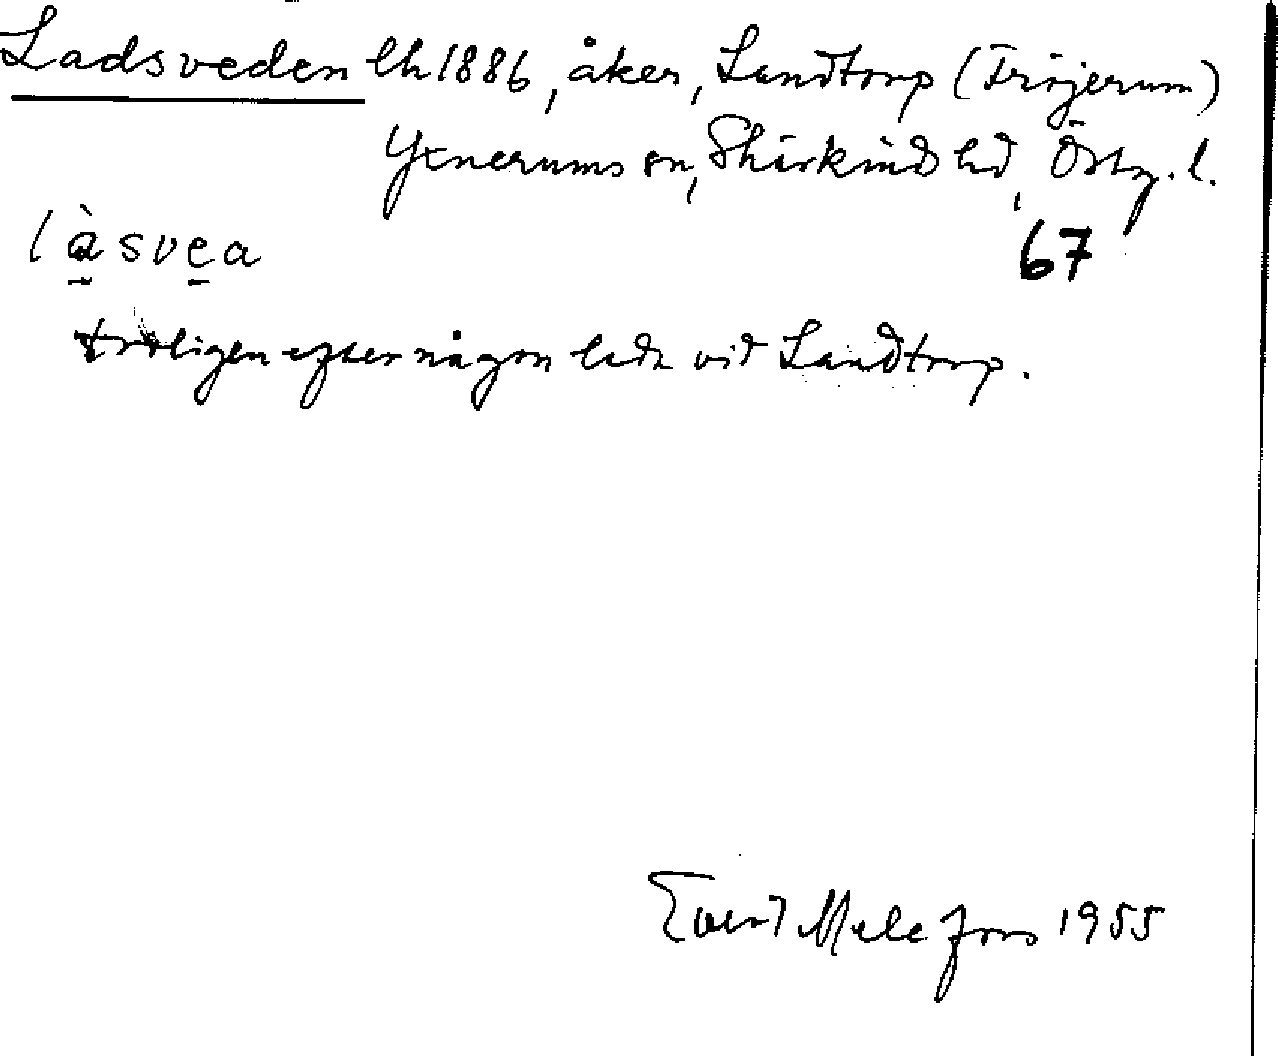 Ladsveden lh 1886, åker, Landtorp (Fröjerum)
Yxnerums sn, Skärkinds hd, Östg. l.
làsvea
67
troligen efter någon lada vid Landtorp.
Evert Melefors 1955